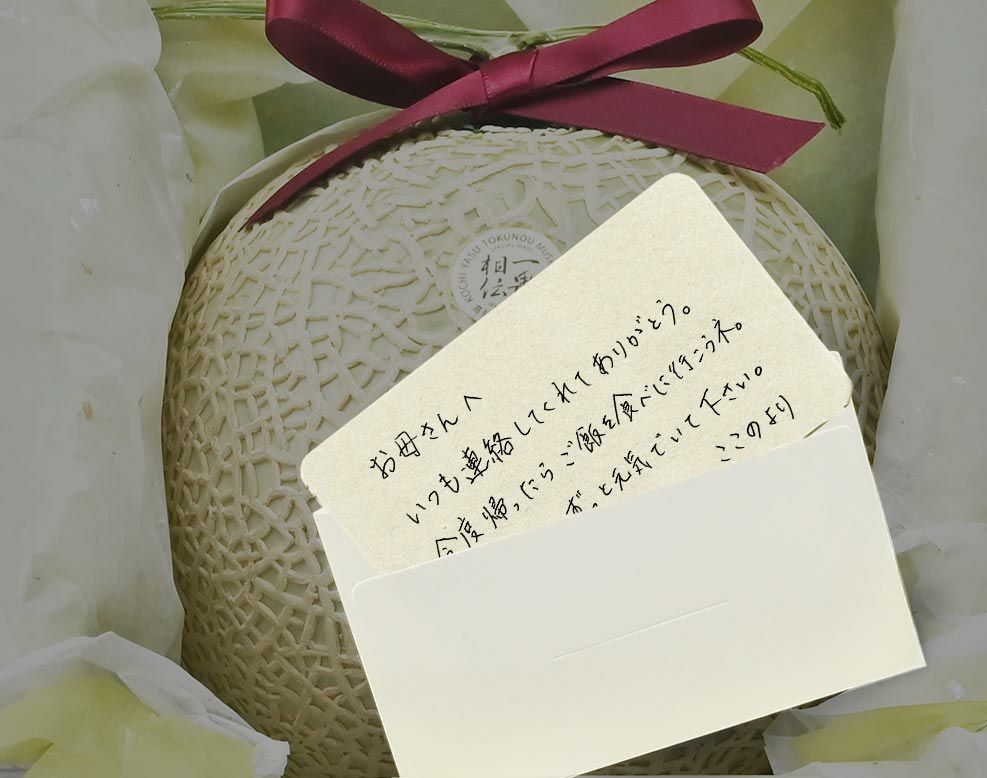 KOCHI YASU TOKUNOU MUS
SPECIAL MADE
一
相伝
お母さんへ
いつも連絡してくれてありがとう。
今度帰ったらご飯を食べに行こうネ。
ずっと元気でいて下さい。
ここのより